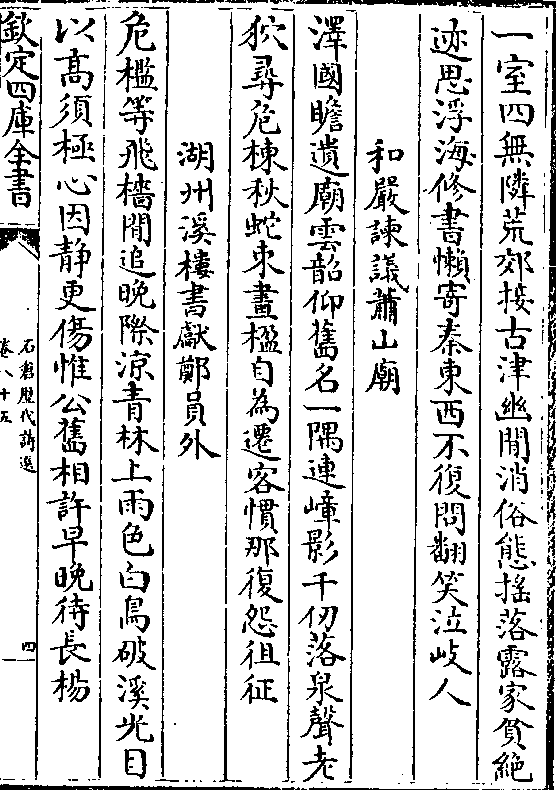 一室四無隣荒郊接古津幽閒消俗態揺落露家貧絶
迹思浮海修書懶寄秦東西不復問翻笑泣岐人
和嚴諫議蕭山廟
澤國瞻遺廟雲韶仰舊名一隅連嶂影千仞落泉聲老
狖尋危棟秋蛇束畫楹自為遷客慣那復怨徂征
湖州溪樓書獻鄭員外
危檻等飛檣閒追晚際涼青林上雨色白鳥破溪光目
以髙須極心因静更傷惟公舊相許早晚待長楊
欽定四庫全書
石倉歷代詩選
卷八十五
四